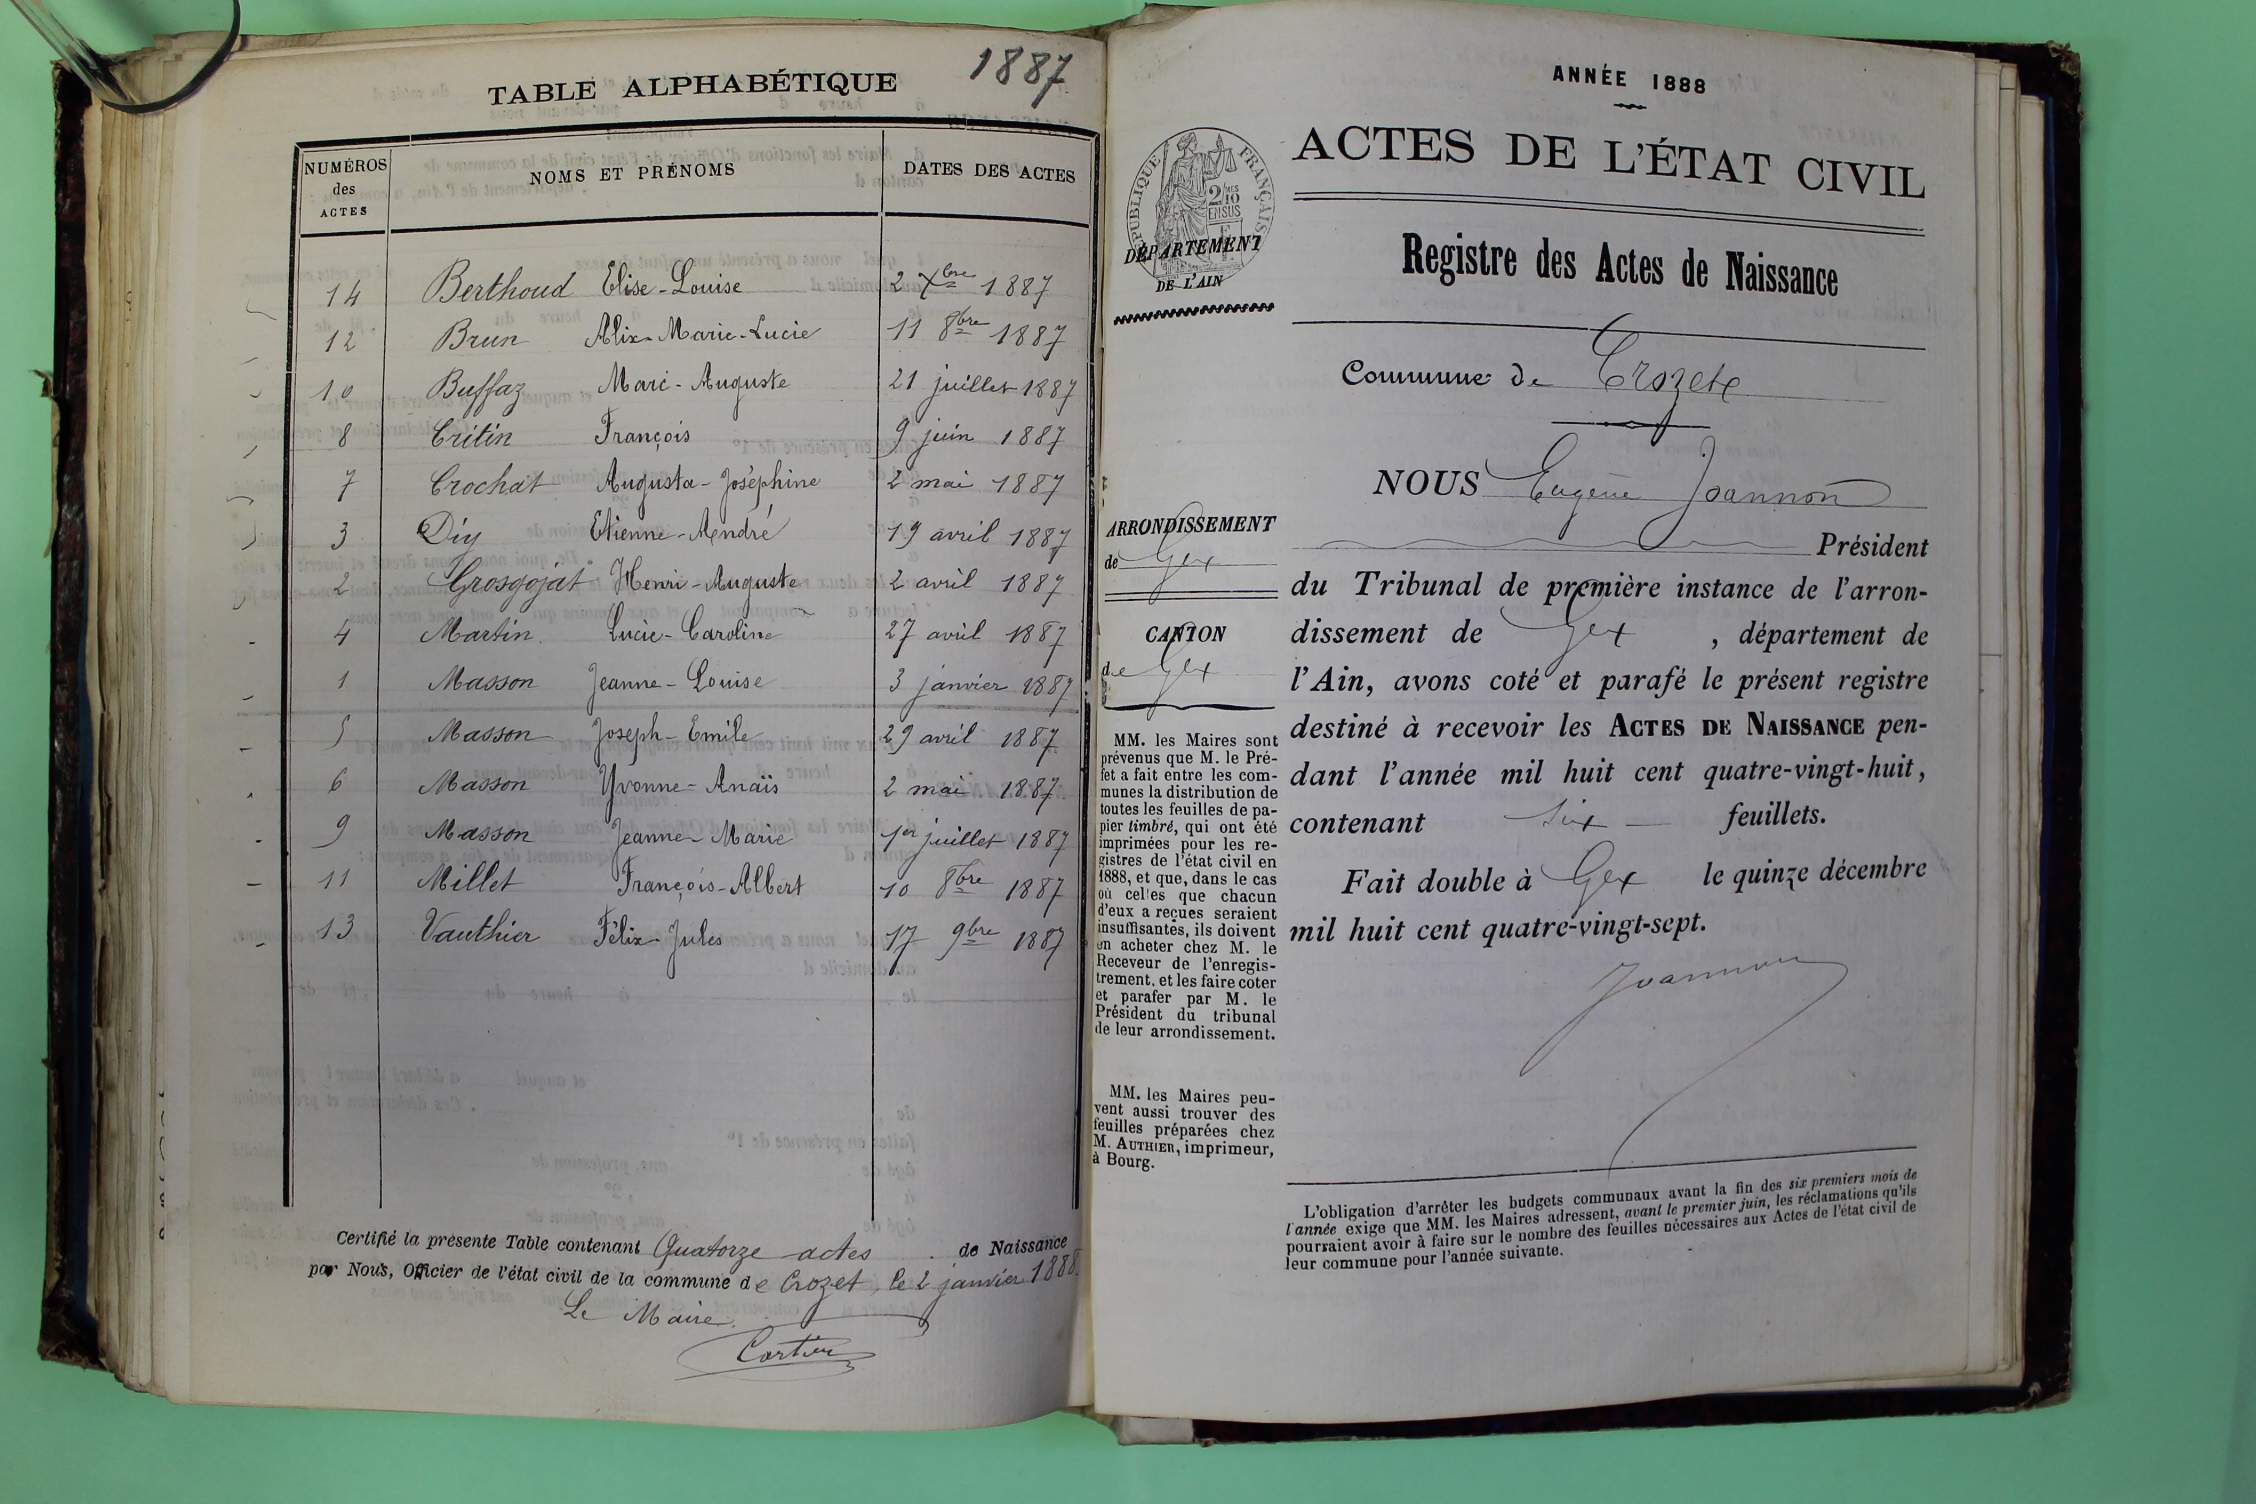 1887
TABLE ALPHABÉTIQUE
NUMÉROS des ACTES NOMS ET PRÉNOMS DATES DES ACTES
14 Berthoud Elise-Louise 2 Xbre 1887
12 Brun Alix-Marie-Lucie 11 8bre 1887
10 Buffaz Marc-Auguste 21 juillet 1887
8 Critin François 9 juin 1887
7 Crochat Augusta-Joséphine 2 mai 1887
3 Diy Etienne-André 19 avril 1887
2 Grosgojat Henri-Auguste 2 avril 1887
4 Martin Lucie-Caroline 27 avril 1887
1 Masson Jeanne-Louise 3 janvier 1887
5 Masson Joseph-Emile 29 avril 1887
6 Masson Yvonne-Anaïs 2 mai 1887
9 Masson Jeanne-Marie 1er juillet 1887
11 Millet François-Albert 10 8bre 1887
13 Vauthier Félix-Jules 17 9bre 1887
Certifié la présente Table contenant Quatorze actes de Naissance
par Nous, Officier de l'état civil de la commune de Crozet, le 2 janvier 1888.
Le Maire
Cartier
ANNÉE 1888
ACTES DE L'ÉTAT CIVIL
RÉPUBLIQUE FRANÇAISE
2/10 EN SUS
DÉPARTEMENT
DE L'AIN
Registre des Actes de Naissance
Commune de Crozet
ARRONDISSEMENT
de Gex
CANTON
de Gex
MM. les Maires sont
prévenus que M. le Pré-
fet a fait entre les com-
munes la distribution de
toutes les feuilles de pa-
pier timbré, qui ont été
imprimées pour les re-
gistres de l'état civil en
1888, et que, dans le cas
où celles que chacun
d'eux a reçues seraient
insuffisantes, ils doivent
en acheter chez M. le
Receveur de l'enregis-
trement, et les faire coter
et parafer par M. le
Président du tribunal
de leur arrondissement.
MM. les Maires peu-
vent aussi trouver des
feuilles préparées chez
M. AUTHIER, imprimeur,
à Bourg.
NOUS Eugène Joannon
Président
du Tribunal de première instance de l'arron-
dissement de Gex, département de
l'Ain, avons coté et parafé le présent registre
destiné à recevoir les ACTES DE NAISSANCE pen-
dant l'année mil huit cent quatre-vingt-huit,
contenant six feuillets.
Fait double à Gex le quinze décembre
mil huit cent quatre-vingt-sept.
Joannon
L'obligation d'arrêter les budgets communaux avant la fin des six premiers mois de
l'année exige que MM. les Maires adressent, avant le premier juin, les réclamations qu'ils
pourraient avoir à faire sur le nombre des feuilles nécessaires aux Actes de l'état civil de
leur commune pour l'année suivante.